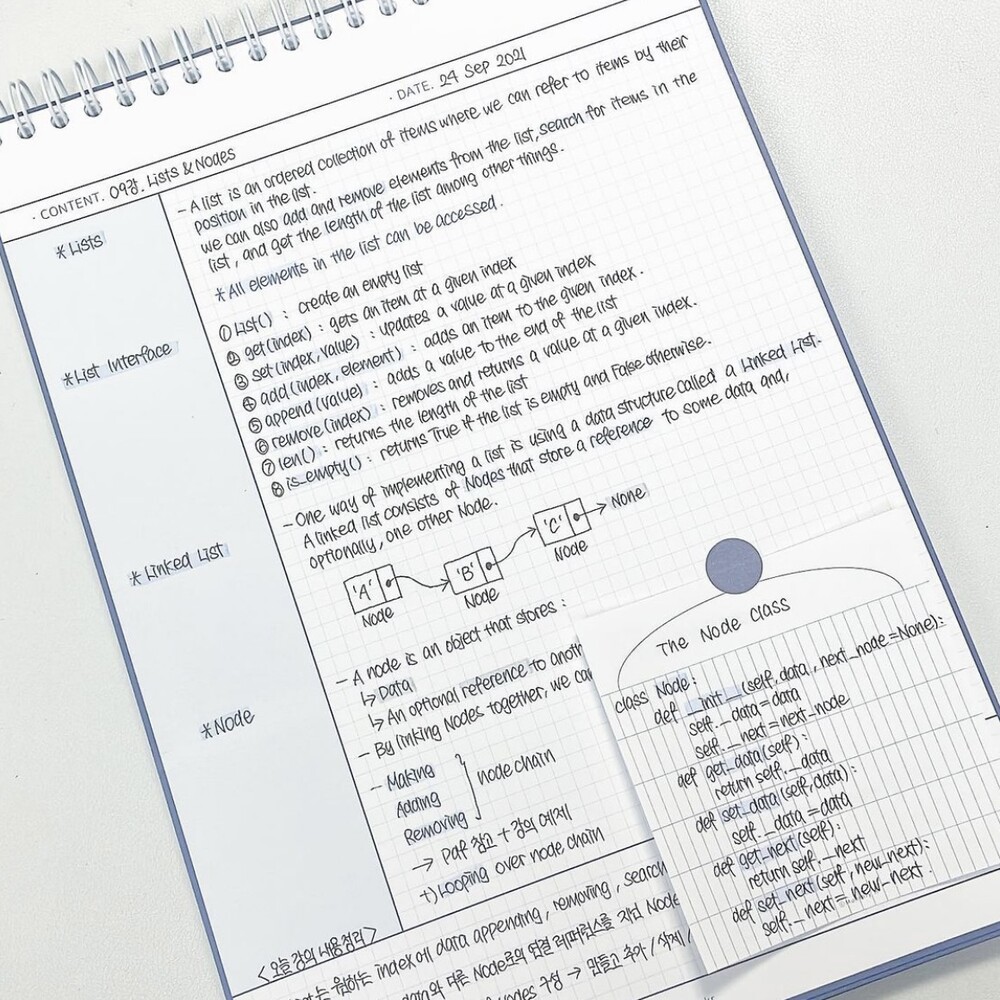 · CONTENT. 09강. Lists & Nodes
· DATE. 24 Sep 2021
* Lists
- A list is an ordered collection of items where we can refer to items by their
position in the list.
we can also add and remove elements from the list, search for items in the
list, and get the length of the list among other things.
* All elements in the list can be accessed.
* List Interface
① List() : create an empty list
② get(index) : gets an item at a given index
③ set(index, value) : updates a value at a given index
④ add(index, element) : adds an item to the given index.
⑤ append(value) : adds a value to the end of the list
⑥ remove(index) : removes and returns a value at a given index.
⑦ len() : returns the length of the list
⑧ is_empty() : returns True if the list is empty and False otherwise.
* Linked List
- One way of implementing a list is using a data structure called a Linked List.
A linked list consists of Nodes that store a reference to some data and,
optionally, one other Node.
'A' 'B' 'C' → None
Node Node Node
* Node
- A node is an object that stores :
↳ Data
↳ An optional reference to anoth
- By linking Nodes together, we ca
- Making
Adding
Removing
node chain
→ Pdf 참고 + 강의 예제
+) Looping over node chain
The Node Class
class Node:
def __init__(self, data, next_node=None):
self._data = data
self._next = next_node
def get_data(self):
return self._data
def set_data(self, data):
self._data = data
def get_next(self):
return self._next
def set_next(self, new_next):
self._next = new_next.
<오늘 강의 내용 정리>
는 원하는 index에 data appending, removing, search
data와 다른 Node로의 연결 레퍼런스를 지닌 Node
nodes 구성 → 만들고 속아 / 삭제 /